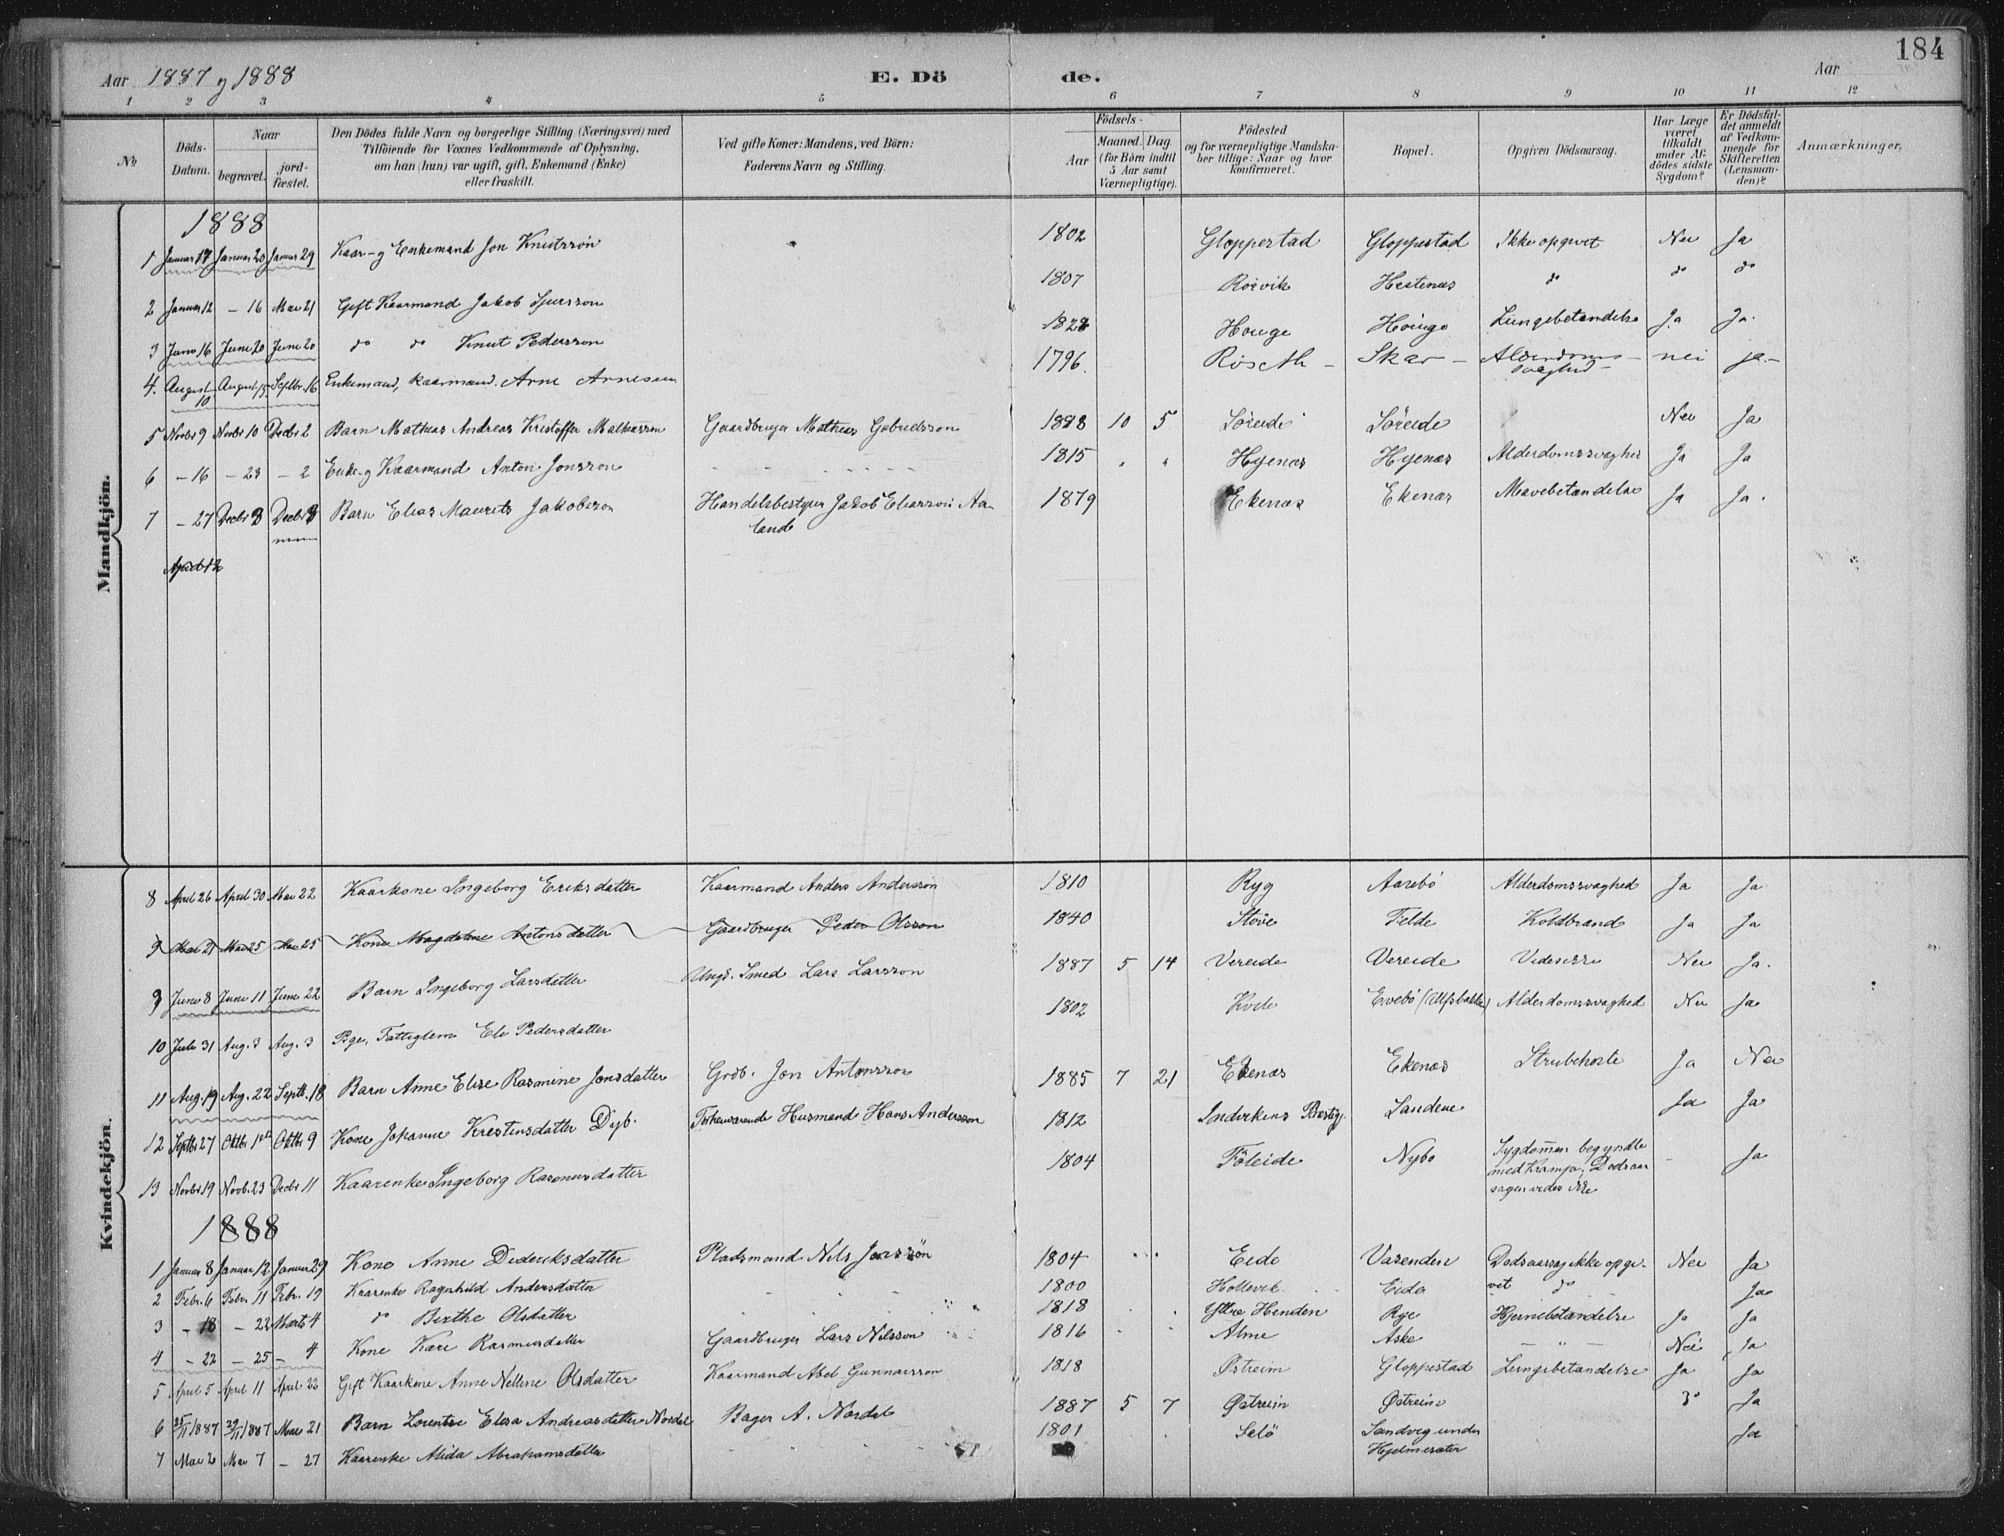 184
Aar 1887 og 1888 E. Dö de. Aar
1 2 3 4 5 6 7 8 9 10 11 12
No
Döds-Datum.
Naar
begravet. jord-fæstet.
Den Dödes fulde Navn og borgerlige Stilling (Næringsvei) med
Tilföiende for Voxnes Vedkommende af Oplysning,
om han (hun) var ugift, gift, Enkemand (Enke)
eller fraskilt.
Ved gifte Koner: Mandens, ved Börn:
Faderens Navn og Stilling.
Födsels-
Aar Maaned. Dag.
(for Börn indtil
5 Aar samt
Værnepligtige).
Födested
og for værnepligtige Mandska-
ber tillige: Naar og hvor
konfirmeret.
Bopæl.
Opgiven Dödsaarsag.
Har Læge
været
tilkaldt
under Af-
dödes sidste
Sygdom?
Er Dödsfal-
det anmeldt
af Vedkom-
mende for
Skifteretten
(Lensman-
den)?
Anmærkninger.
Mandkjön.
1888
1 Januar 17 Januar 20 Januar 29 Kaar- og Enkemand Jon Knutssön 1802 Gloppestad Gloppestad Ikke opgivet Nei Ja
2 Januar 12 – 16 Mai 21 Gift Kaarmand Jakob 1807 Rösvik Hestenæs do do do
3 Juni 16 Juni 20 Juni 20 do do Knut Pedersson 1828 Houge Houge Lungebetændelse Ja Ja.
4. August 10 August 15 Septbr. 16 Enkemand, kaarmand. Arne Arnesen 1796. Röseth – Skar – Alderdoms-
svaghed – nei ja –
5 Novbr 9 Novbr 10 Decbr 2 Barn Mathias Andreas Kristoffer Mathiasson Gaardbruger Mathias Gabrielsson 1888 10 5 Söreide Söreide Nei Ja
6 – 16 – 23 – 2 Enke- og Kaarmand Anton Jonsson 1815 Hyenæs Hyenæs Alderdomssvaghed Ja Ja
7 – 27 Decbr 3 Decbr 9 Barn Elias Maurits Jakobsson Handelsbestyrer Jakob Eliassön Aa-
land 1879 Ekenæs Ekenæs Mavebetændelse Ja Ja.
April 12
Kvindekjön.
8 April 26 April 30 Mai 22 Kaarkone Ingeborg Eriksdatter Kaarmand Anders Anderssön 1810 Ryg Aarebö Alderdomssvaghed Ja Ja
9 Mai 21 Mai 25 Mai 25 Kone Magdalene Antonsdatter Gaardbruger Peder Olsson 1840 Stöve Felde Koldbrand Ja Ja
9 Juni 8 Juni 11 Juni 22 Barn Ingeborg Larsdatter Ungk. Smed Lars Larsson 1887 5 14 Vereide Vereide Nei Ja.
10 Juli 31 Aug. 3 Aug. 3 Pige, Fattiglem Eli Pedersdatter 1802 Evebö (Alfsbakke) Alderdomssvaghed Nei Ja
11 Aug. 19 Aug. 22 Septb. 18 Barn Anne Elise Rasmine Jonsdatter Grdb. Jon Antonsson 1885 7 21 Ekenæs Ekenæs Strubehoste Ja Nei
12 Septbr 27 Oktbr 1ste Oktbr 9 Kone Johanne Krestensdatter Dyb. Forhenværende Husmand Hans Andersson 1812 Indvikens Prestg. Sandene Ja Ja
13 Novbr 19 Novb. 23 Decbr 11 Kaarenke Ingeborg Rasmusdatter 1804 Föleide Nybö Sygdommen begyndte
med Krampe. Dødsaar-
sagen vides ikke – Ja
1888
1 Januar 8 Januar 12 Januar 29 Kone Anne Dideriksdatter Pladsmand Nils Jonssön 1804 Eide Vasenden Dødsaarsag ikke opgi-
vet Nei Ja
2 Febr. 6 Febr. 11 Febr. 19 Kaarenke Ragnhild Andersdatter 1800 Hollevik Eide do Ja
3 – 18 – 22 Marts 4 do Berthe Olsdatter 1818 Ytre Henden Rye Hjernebetændelse Ja Ja
4 – 22 – 25 – 4 Kone Kari Rasmusdatter Gaardbruger Lars Nilsson 1816 Alme Aske – " – Nei Ja
5 April 5 April 11 April 22 Gift Kaarkone Anne Nelline Olsdatter Kaarmand Abel Gunnarsson 1818 Østreim Gloppestad Lungebetændelse Ja Ja
6 25/11 1887 29/11 1887 Mai 21 Barn Lorentse Elisa Andreasdatter Nordal Bager A. Nordal 1887 5 7 Østreim Østreim do Ja
7 Mai 2 Mai 7 – 27 Kaarenke Alida Abrahamsdatter 1801 Selö Sandvig under
Hjelmesæter Ja